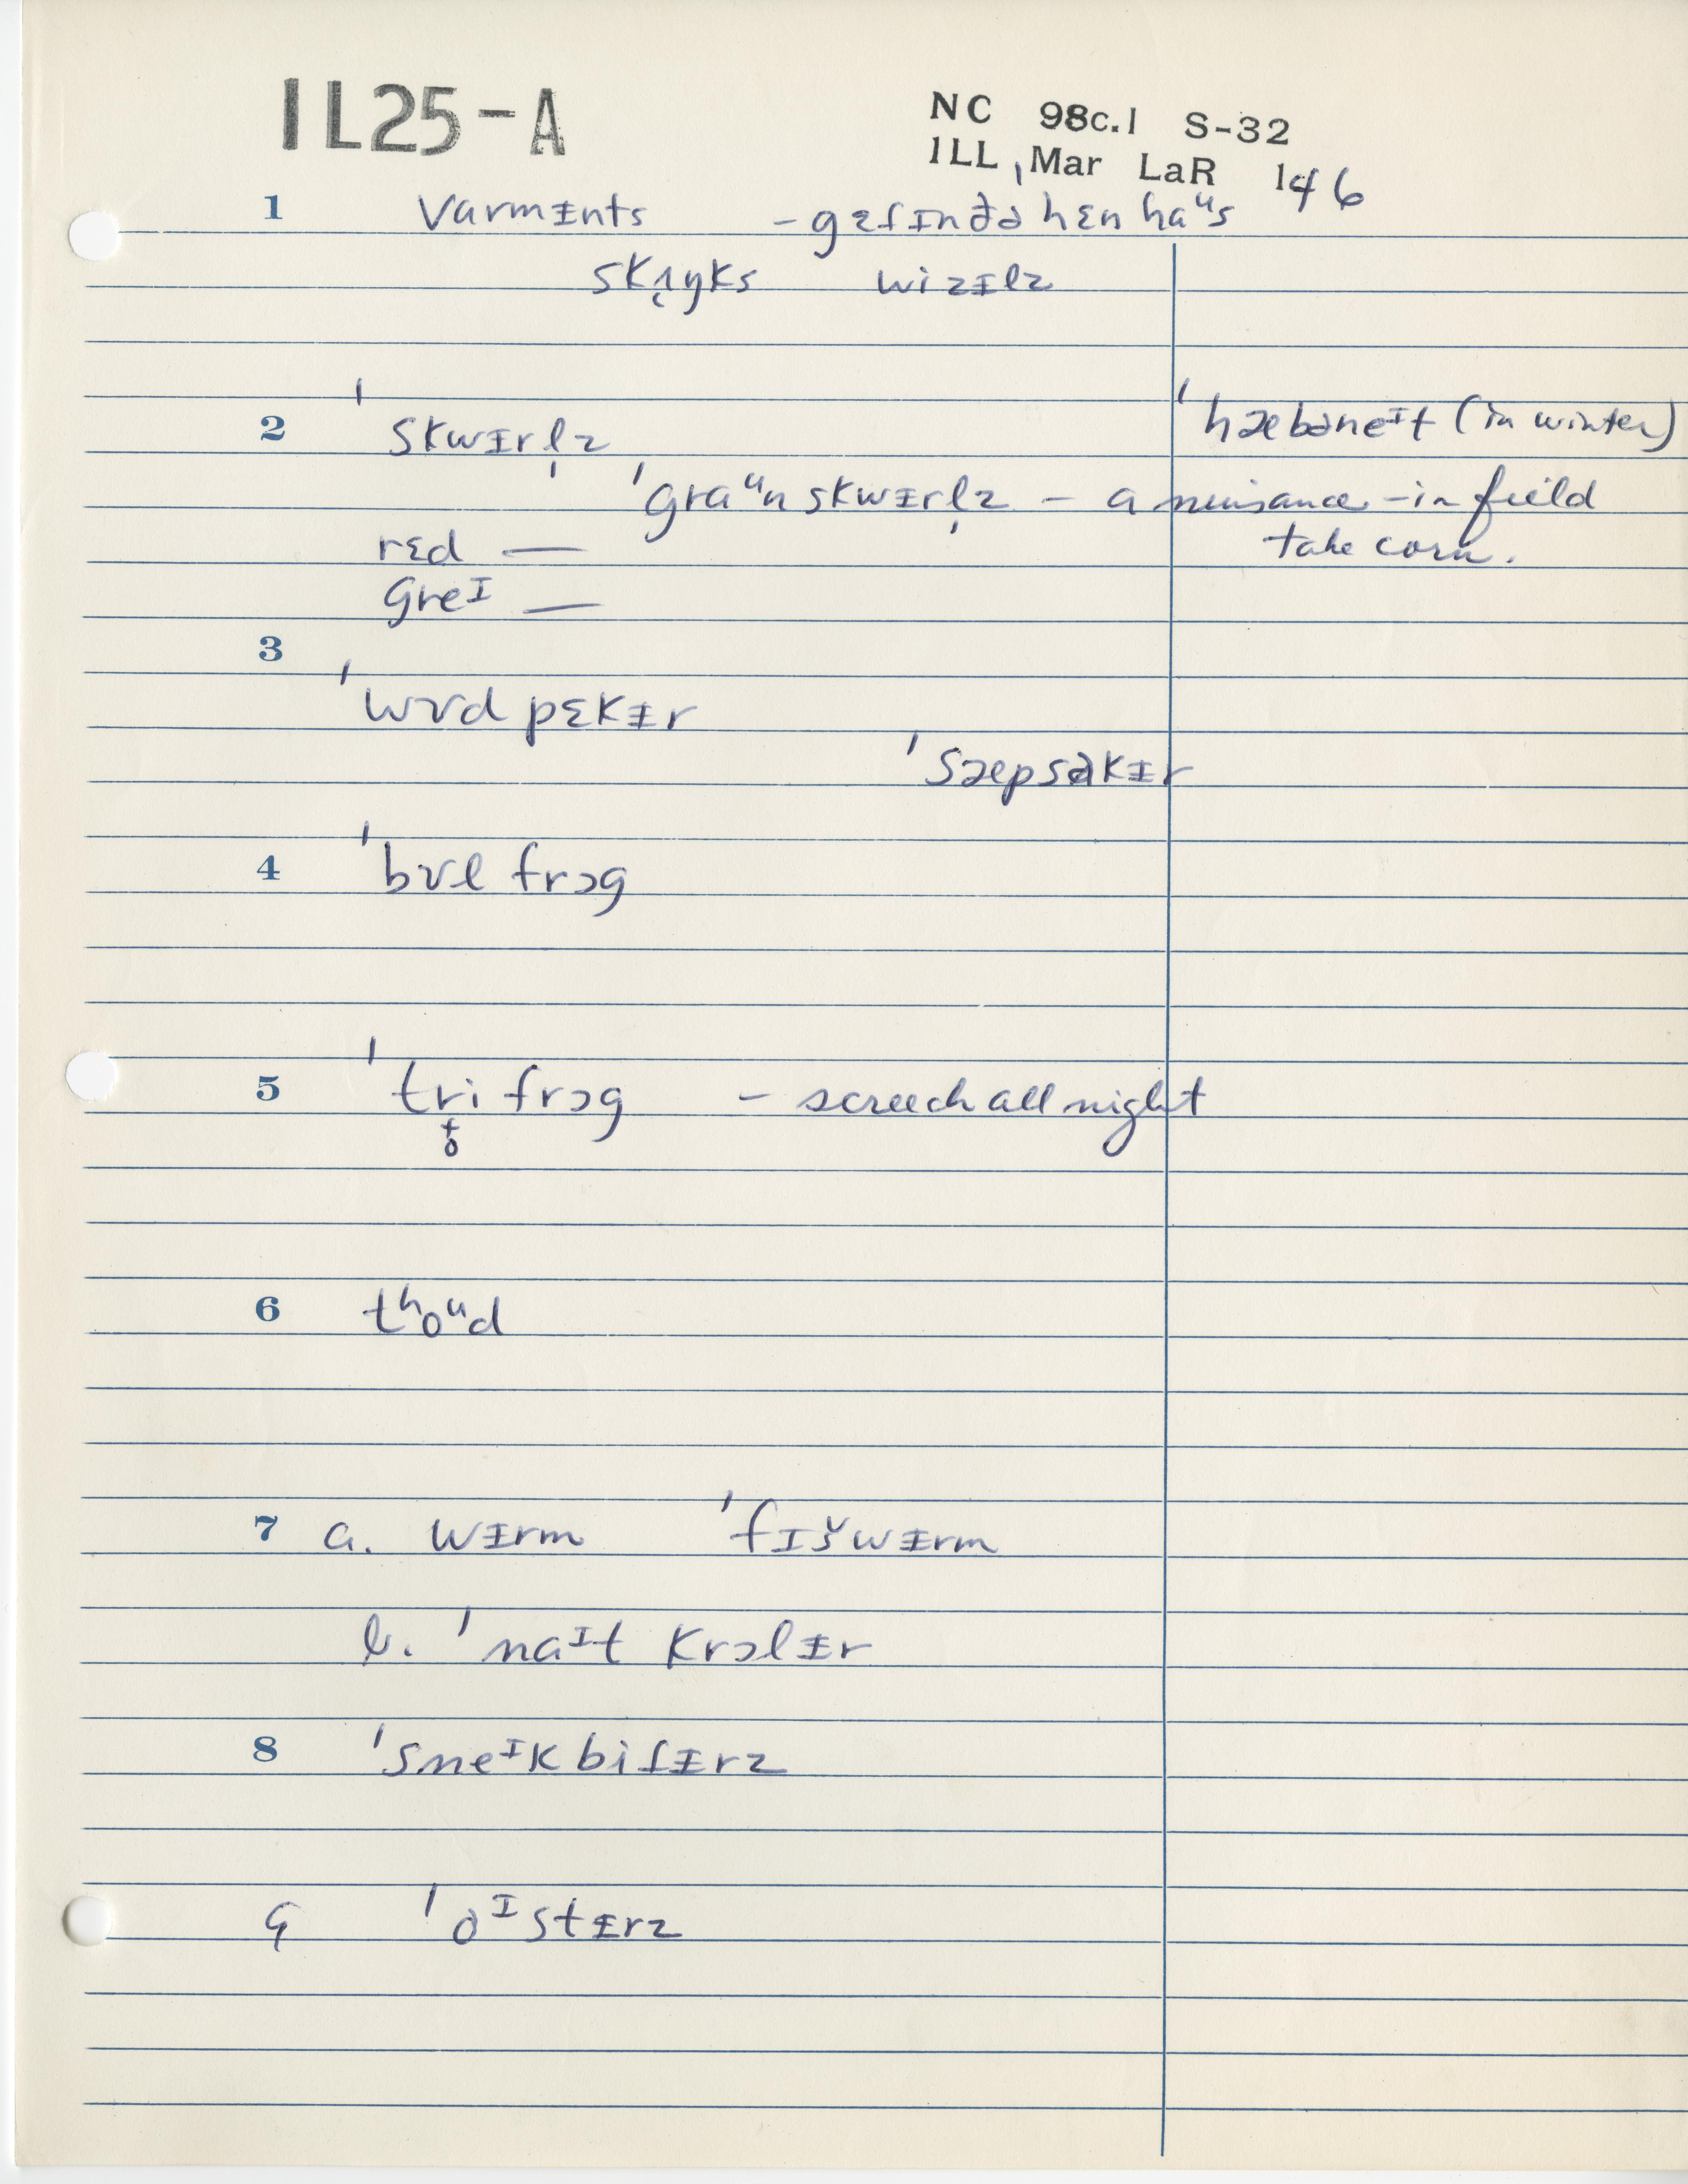 1L25-A
NC 98c.1 S-32
ILL, Mar LaR 146
1 varmᵻnts - gɛſɪnðə hɛn haᵘs
skʌŋks wizᵻlz
2 ˈskwɪrl̩z ˈhæbəneᴵt (in winter)
ˈgraᵘn skwɪrl̩z - a nuisance - in field
rɛd — take corn.
greᴵ —
3
ˈwʊd pɛkᵻr
ˈsæpsəkᵻr
4 ˈbʊl frɔg
5 ˈtri frɔg - screech all night
6 tʰoᵘd
7 a. wᵻrm ˈfɪšwᵻrm
b. ˈnaᴵt krɔlᵻr
8 ˈsneᴵk biſᵻrz
9 ˈoᴵstᵻrz